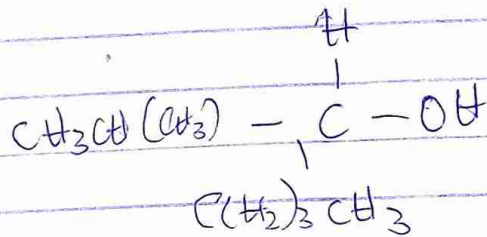 H
CH3CH(CH3) - C - OH
C(H2)3 CH3